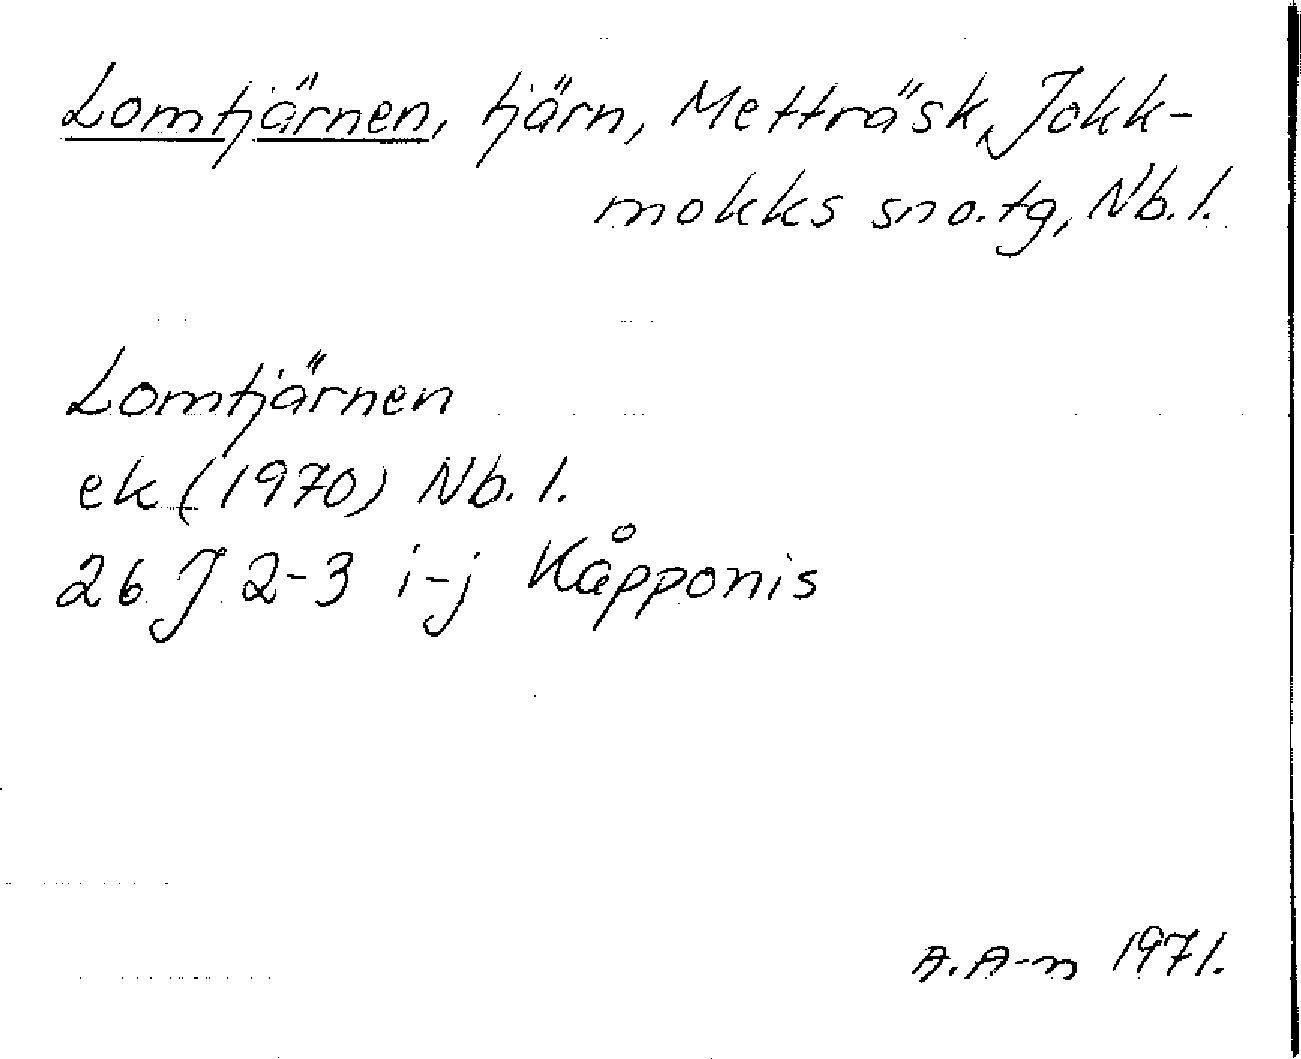 Lomtjärnen, tjärn, Metträsk, Jokk-
mokks sn o. tg, Nb. l.
Lomtjärnen
ek (1970) Nb. l.
26 J 2-3 i-j Kåpponis
A. A-n 1971.